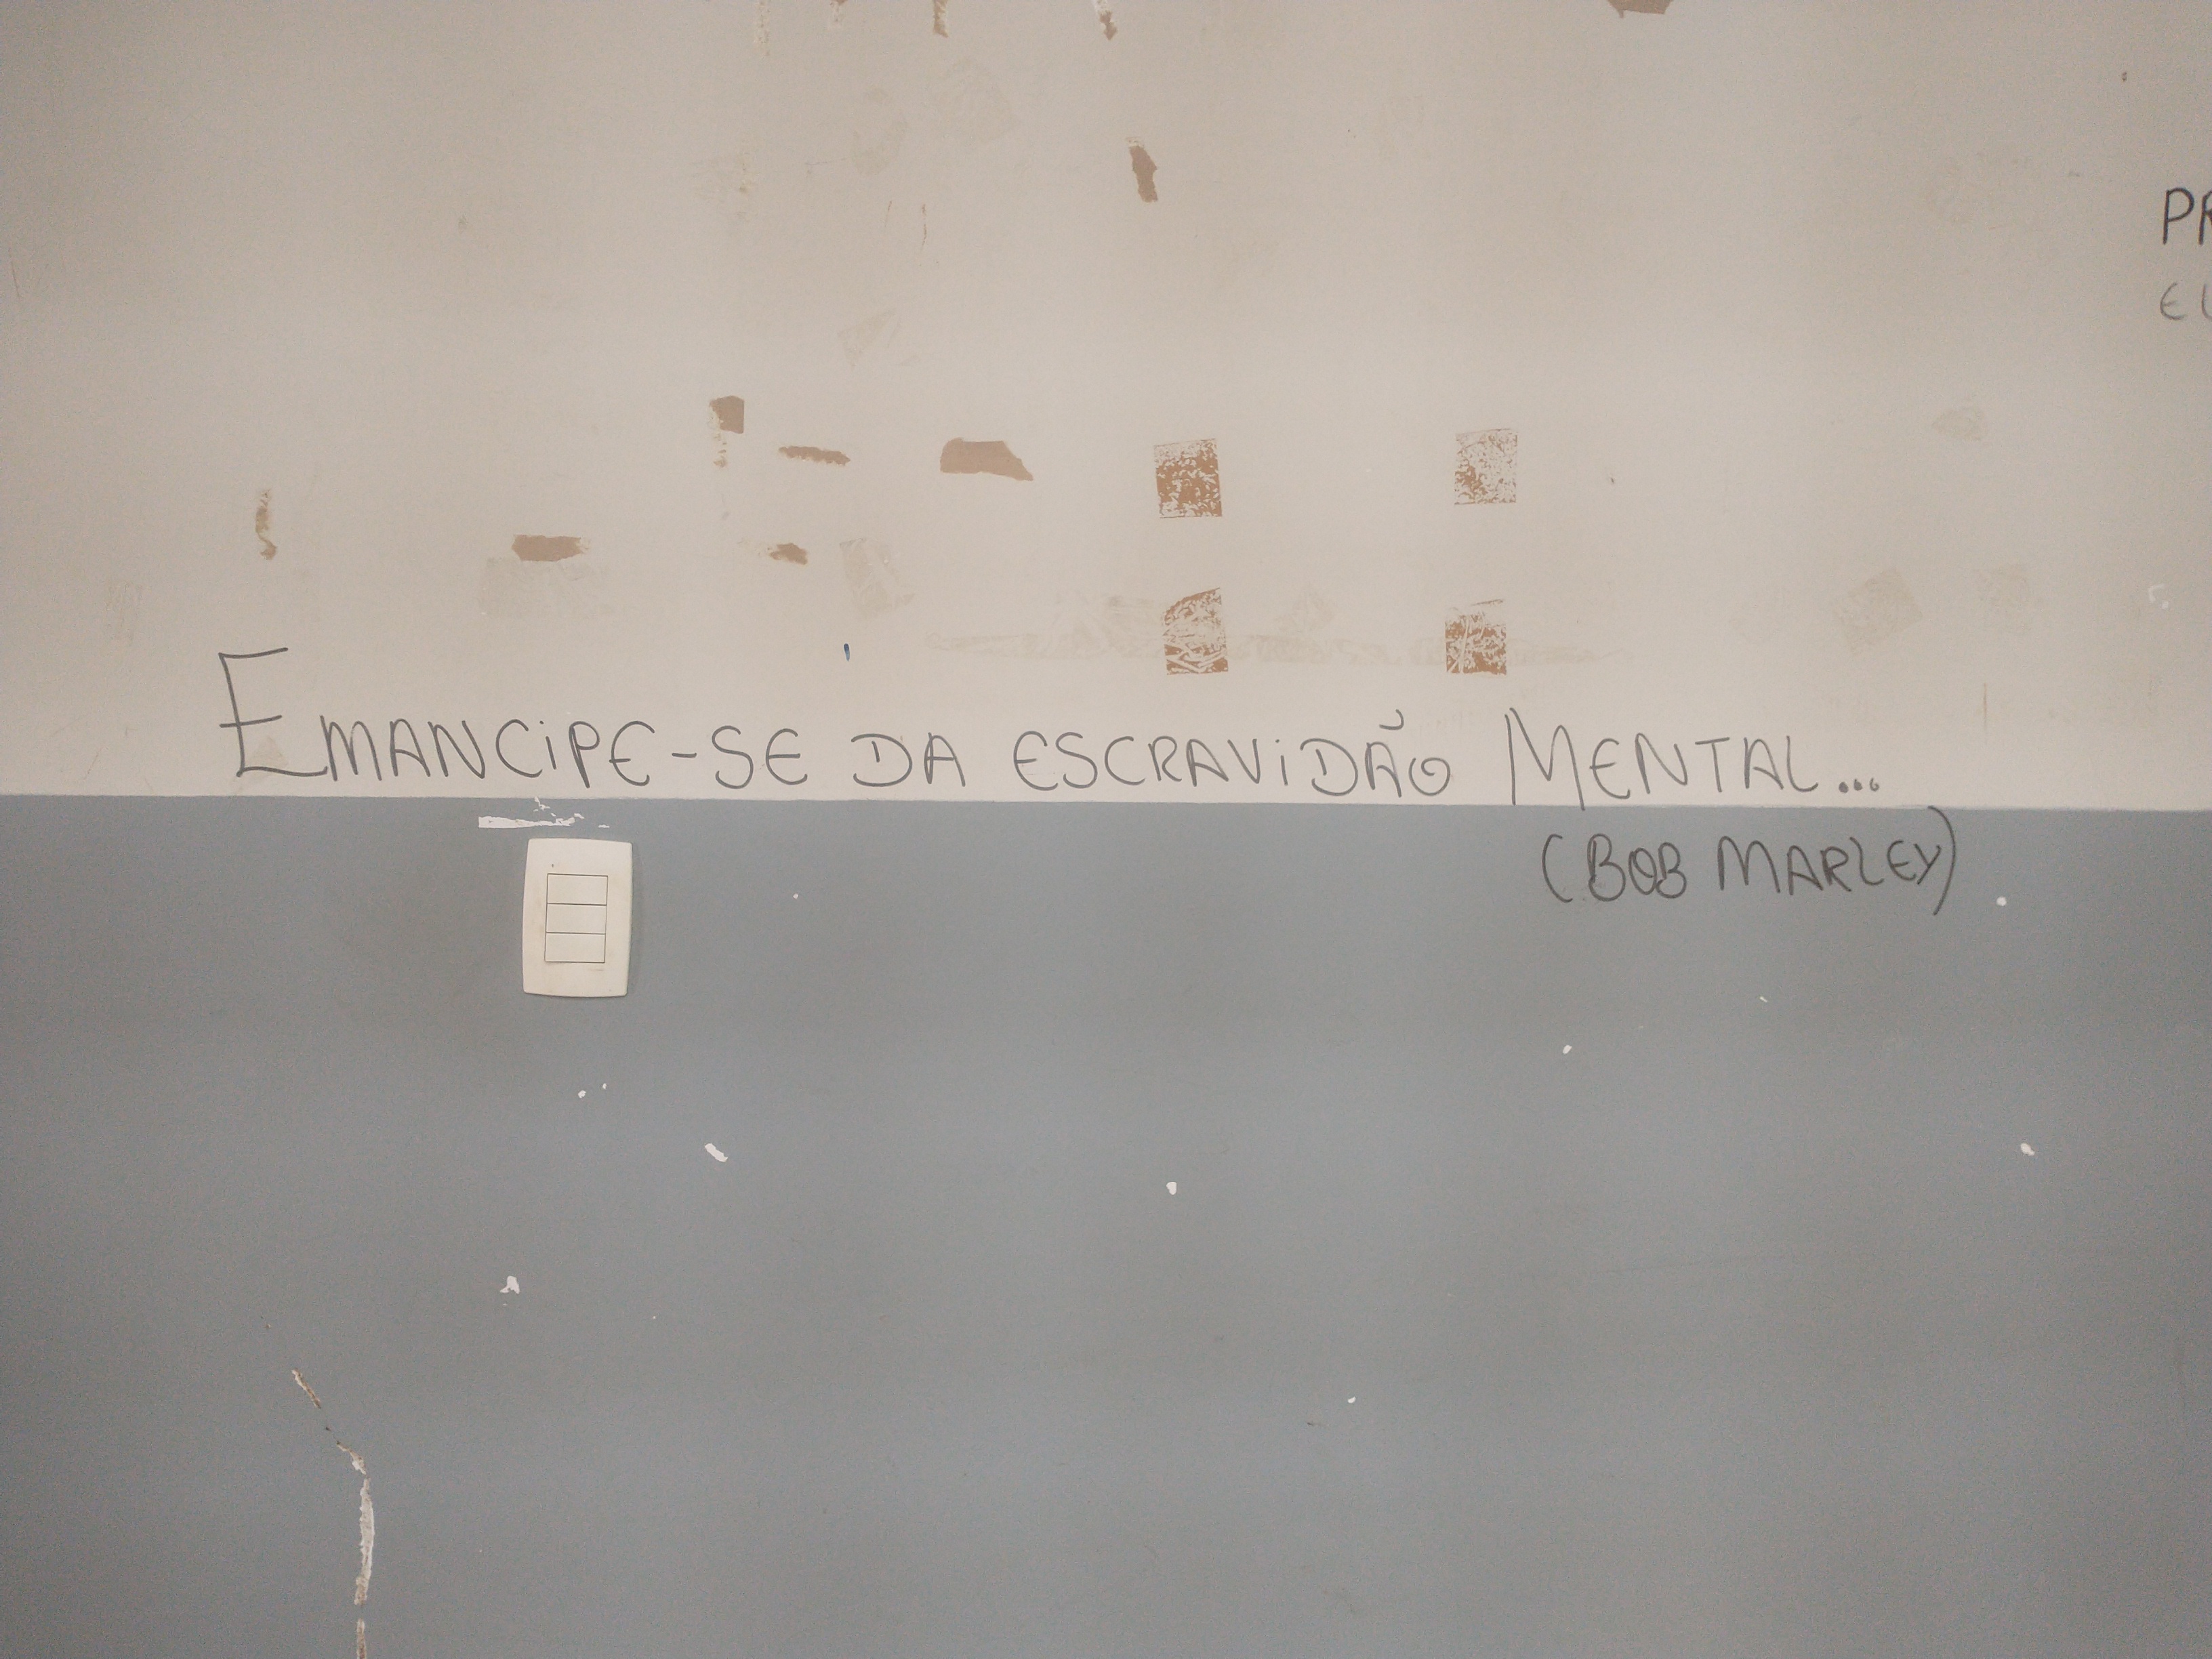 EMANCiPE-SE DA ESCRAViDÃO MENTAL...
(BOB MARLEY)